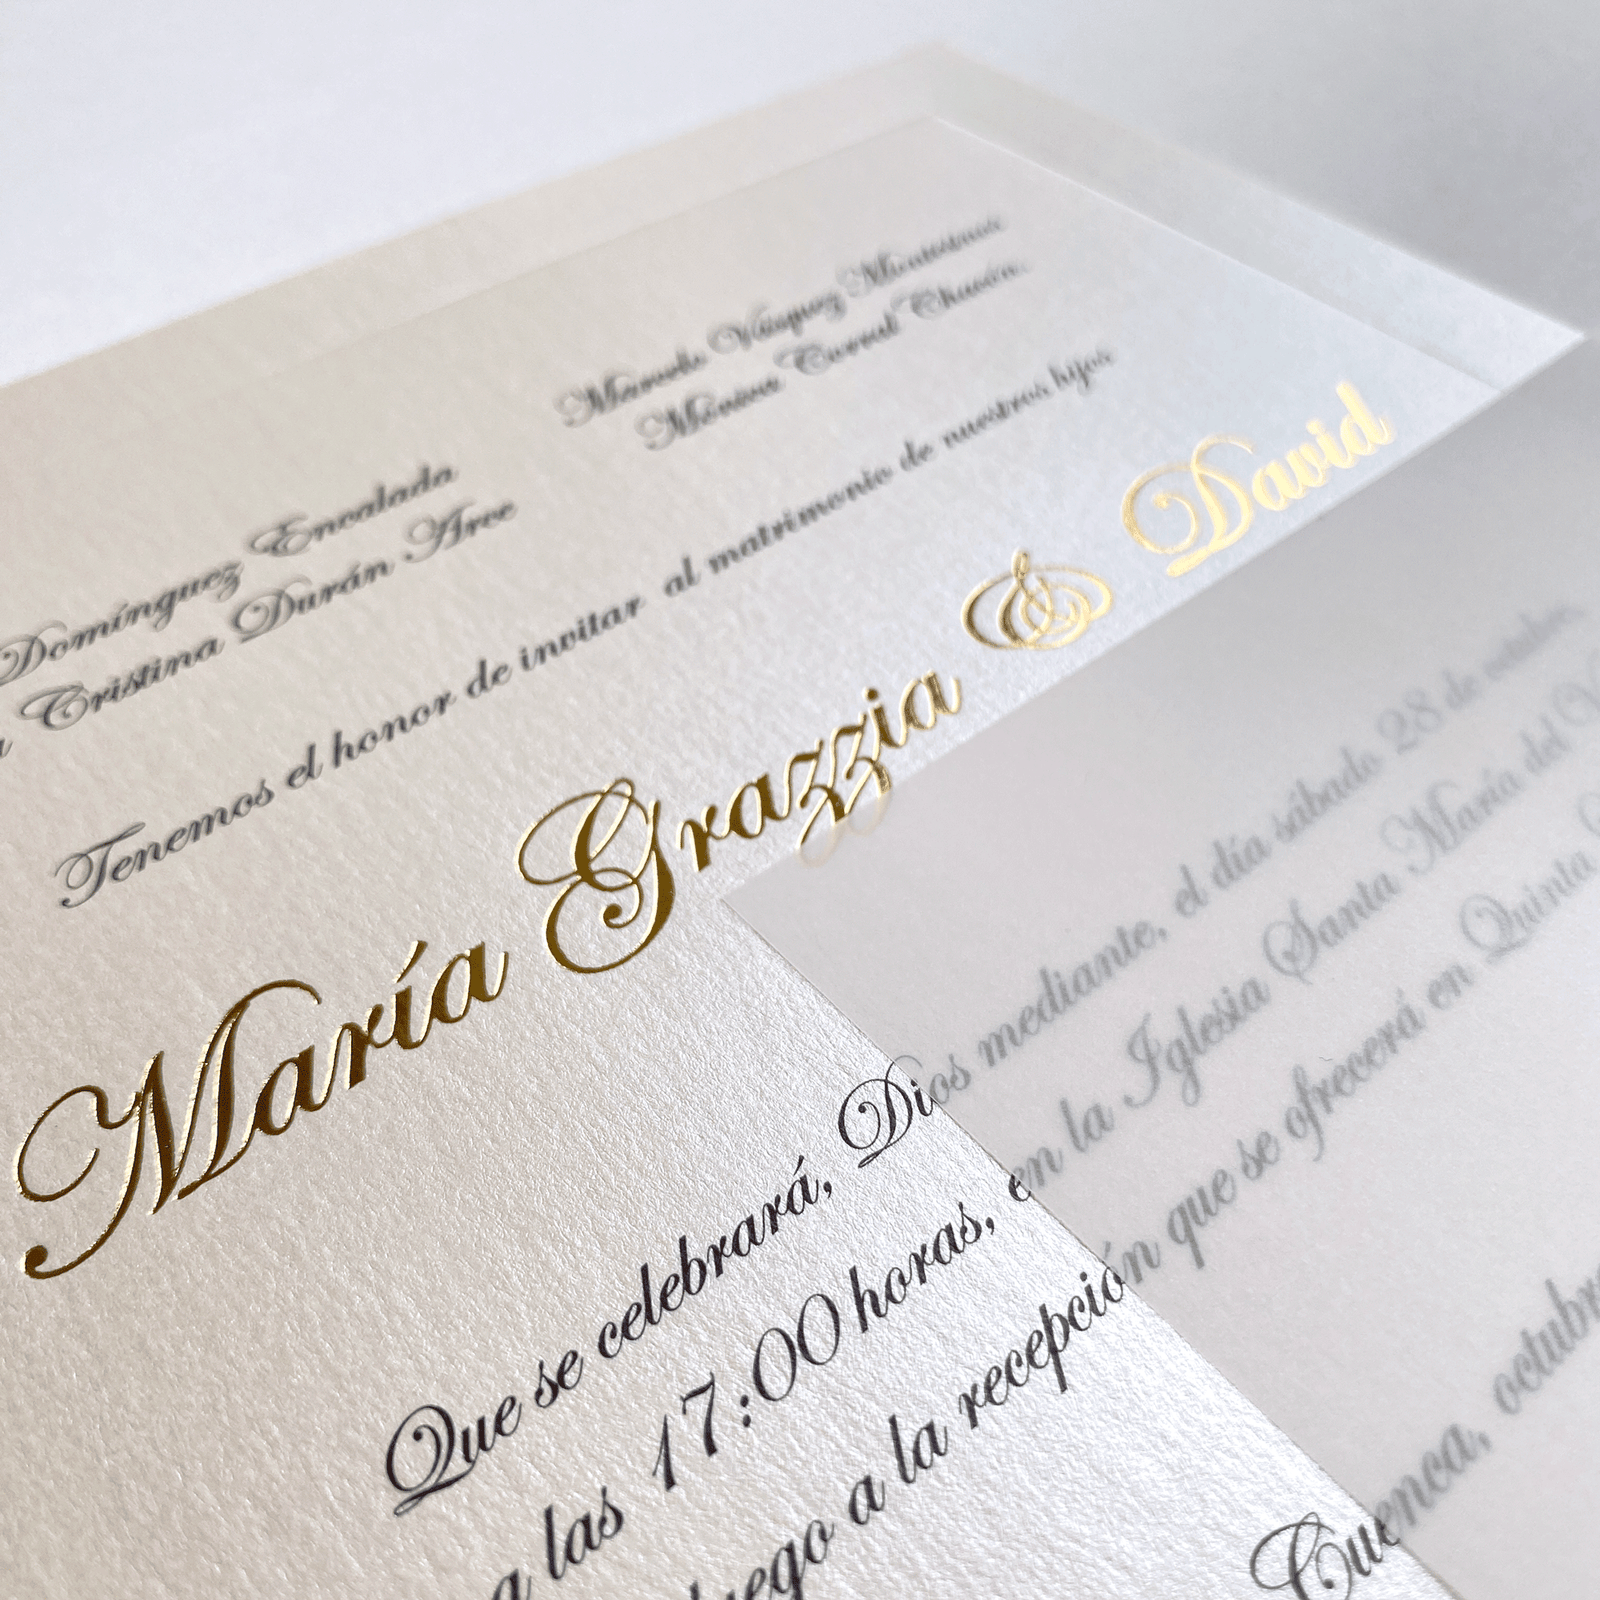 Domínguez Encalada
Cristina Durán Arce
Marcelo Vásquez
Mónica Corral Chacón.
Tenemos el honor de invitar al matrimonio de nuestros hijos
María Grazzia & David
Que se celebrará, Dios mediante, el día sábado 28 de octubre,
a las 17:00 horas, en la Iglesia Santa María del
luego a la recepción que se ofrecerá en Quinta
Cuenca,